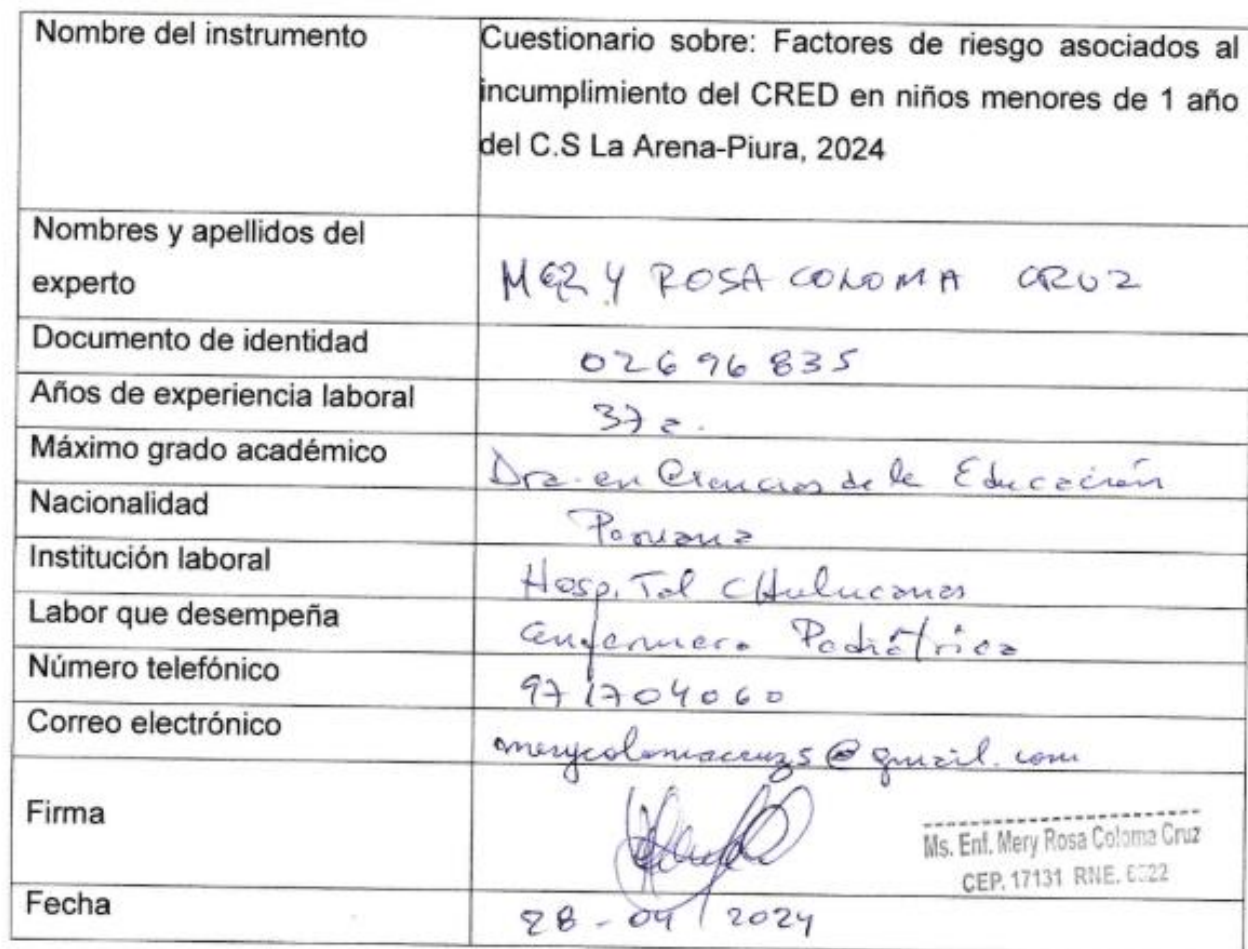 Nombre del instrumento
Cuestionario sobre: Factores de riesgo asociados al
incumplimiento del CRED en niños menores de 1 año
del C.S La Arena-Piura, 2024
Nombres y apellidos del
experto
MERY ROSA COLOMA CRUZ
Documento de identidad
02696835
Años de experiencia laboral
37 a.
Máximo grado académico
Dra. en Ciencias de la Educación
Nacionalidad
Peruana
Institución laboral
Hospital Chulucanas
Labor que desempeña
enfermera Pediátrica
Número telefónico
971704060
Correo electrónico
merycolomacruz5@gmail.com
Firma
Ms. Enf. Mery Rosa Coloma Cruz
CEP. 17131 RNE.
Fecha
28-04/2024